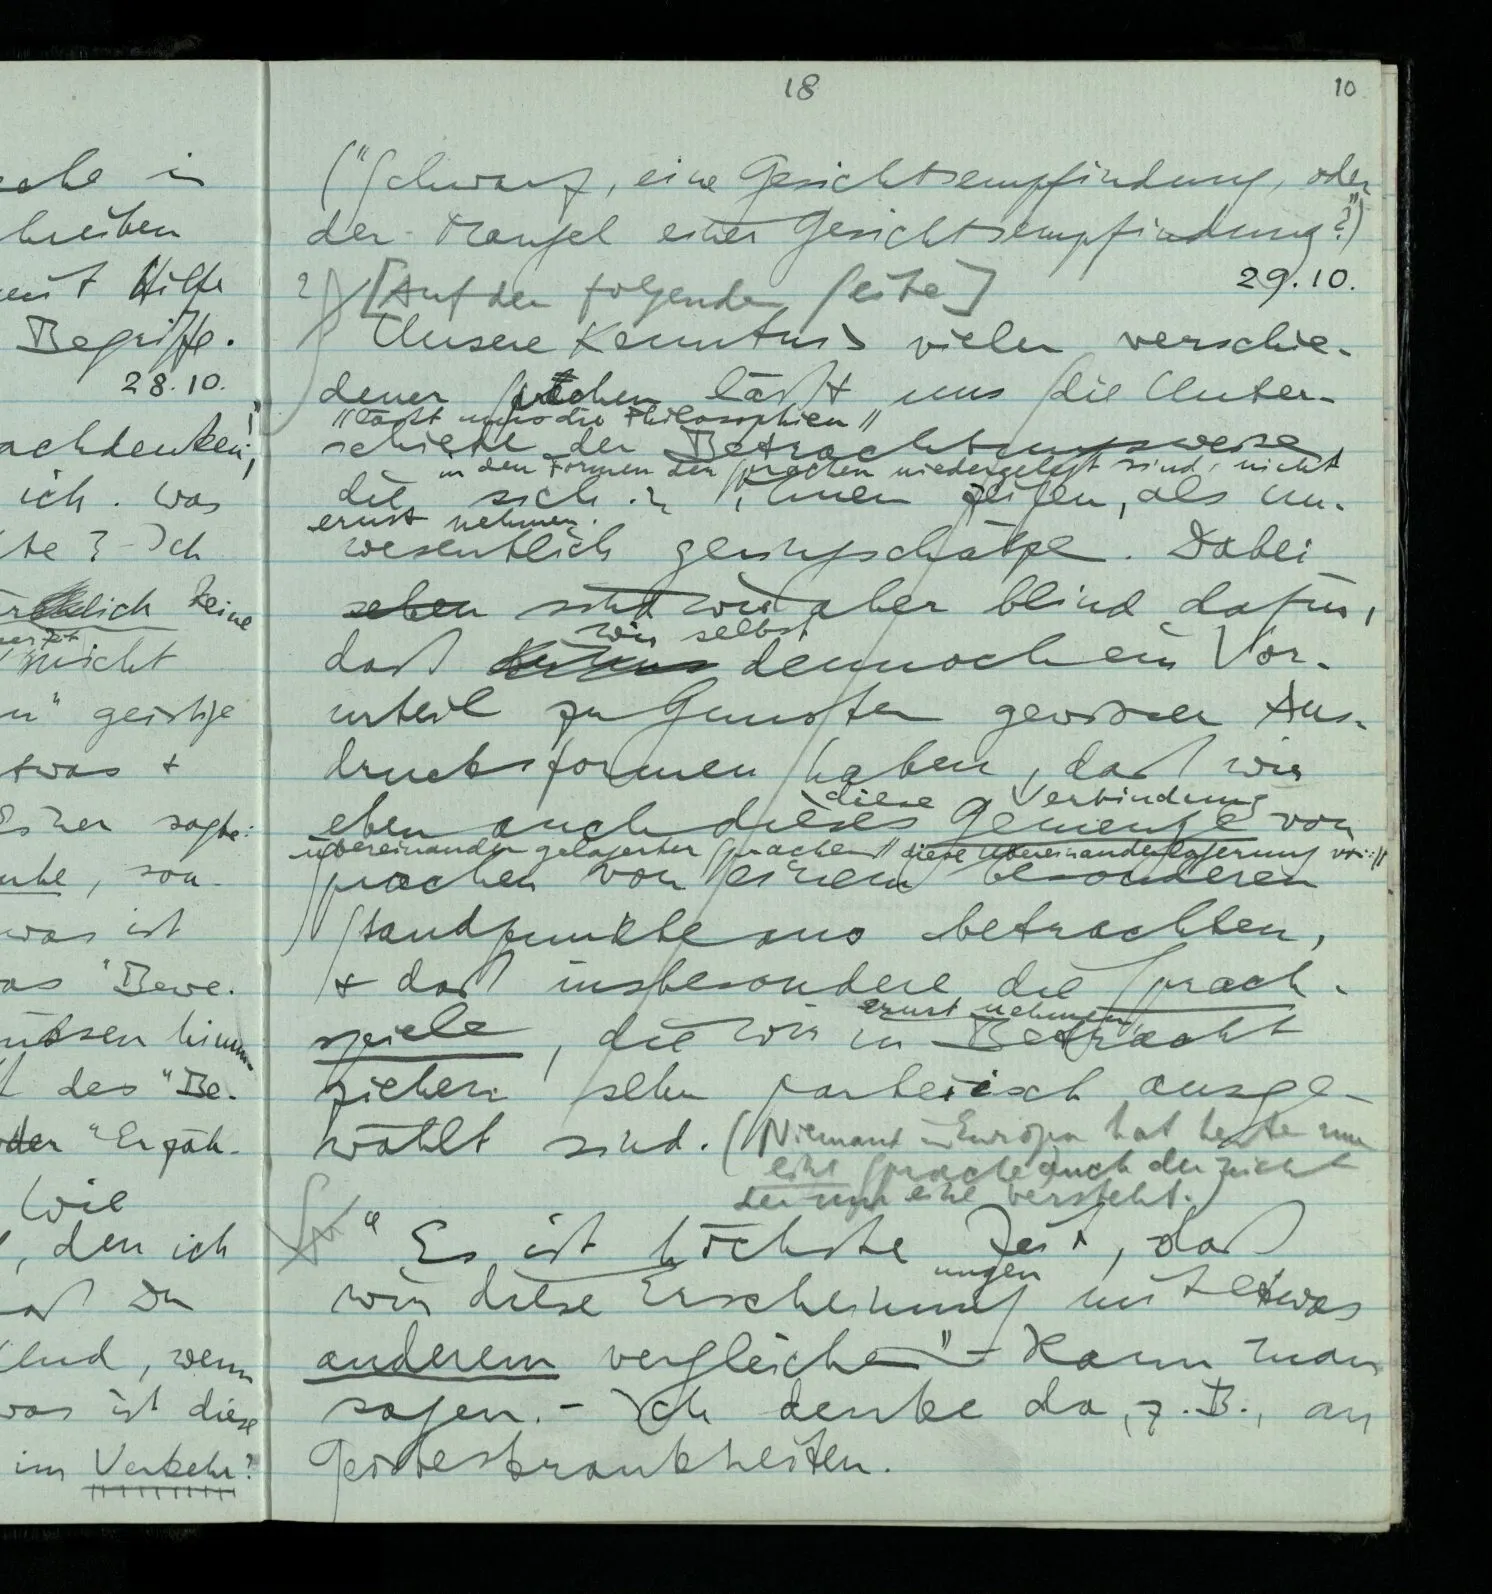 18
10
sche in
hreiben
mit Hilfe
Begriffe.
28.10.
achdenken!",
ich. Was
te? – Ich
lich keine
nicht
n" geistige
twas +
Es sagte:
, son-
was ist
as "Bewe-
müssen hinun-
des "Be-
oder "Erzäh-
Wie
, den ich
Du
, wenn
was ist diese
im Verkehr?
("Schwarz, eine Gesichtsempfindung, oder
der Mangel einer Gesichtsempfindung?")
29.10.
? [Auf der folgenden Seite]
Unsere Kenntnis vieler verschie-
dener Sprachen läßt uns die Unter-
//läßt uns die Philosophien//
schiede der Betrachtungsweise
in den Formen der Sprachen niedergelegt sind, nicht
die sich in ihnen zeigen, als un-
ernst nehmen.
wesentlich geringschätze. Dabei
sehen sind wir aber blind dafür,
wir selbst
daß dennoch ein Vor-
urteil zu Gunsten gewisser Aus-
drucksformen haben, daß wir
diese Verbindung
eben auch dieses Gemenge von
übereinander gelagerter Sprachen // diese Übereinanderlagerung von ..//
Sprachen von einem besonderen
Standpunkte aus betrachten,
+ daß insbesondere die Sprach-
ernst nehmen,
spiele, die wir in Betracht
ziehen sehr parteiisch ausge-
wählt sind. (Niemand in Europa hat heute nur
eine Sprache auch der nicht
der nur eine versteht.)
"Es ist höchste Zeit, daß
ungen
wir diese Erscheinung mit etwas
anderem vergleichen" – kann man
sagen. – Ich denke da, z.B., an
Geisteskrankheiten.